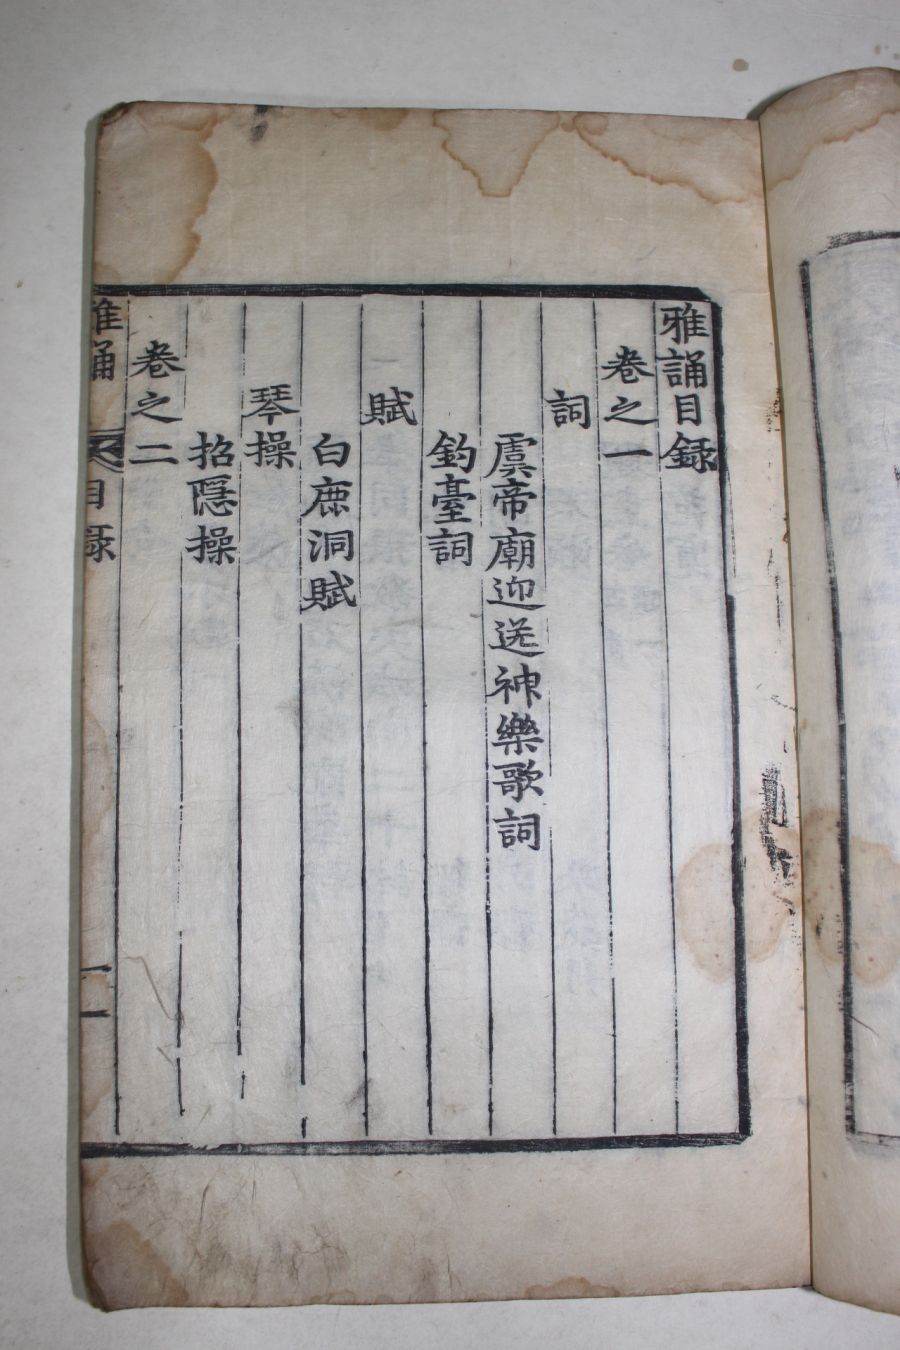 雅誦目録
卷之一
詞
虞帝廟迎送神樂歌詞
釣臺詞
賦
白鹿洞賦
琴操
招隱操
卷之二
雅誦 目録 一